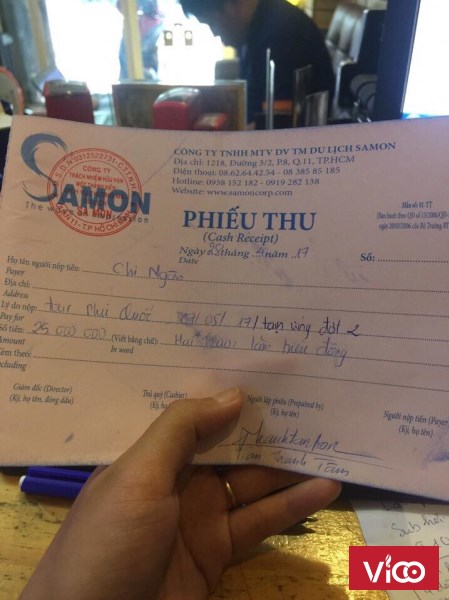 CÔNG TY TNHH MTV DV TM DU LỊCH SAMON
Địa chỉ: 1218, Đường 3/2, P.8, Q.11, TP.HCM
Điện thoại: 08.62.64.42.54 - 08 385 85 185
Hotline: 0938 152 182 - 0919 282 138
Website: www.samoncorp.com
CÔNG TY
TRÁCH NHIỆM HỮU HẠN
SA MON
SAMON
PHIẾU THU
(Cash Receipt)
Mẫu số 01-TT
Ngày 28 tháng 4 năm 17
Date
Số:
Họ tên người nộp tiền: Chị Ngân
Payer
Địa chỉ:
Address
Lý do nộp: tour Phú Quốc /05/17/ tạm ứng đợt 2
Pay for
Số tiền: 25 000 000 (Viết bằng chữ) Hai lăm triệu đồng
Amount In word
Kèm theo:
Including
Giám đốc (Director)
(Ký, họ tên, đóng dấu)
Thủ quỹ (Cashier)
(Ký, họ tên)
Người lập phiếu (Prepared by)
(Ký, họ tên)
Người nộp tiền (Payer
(Ký, họ tên)
Thanh Tâm
vico